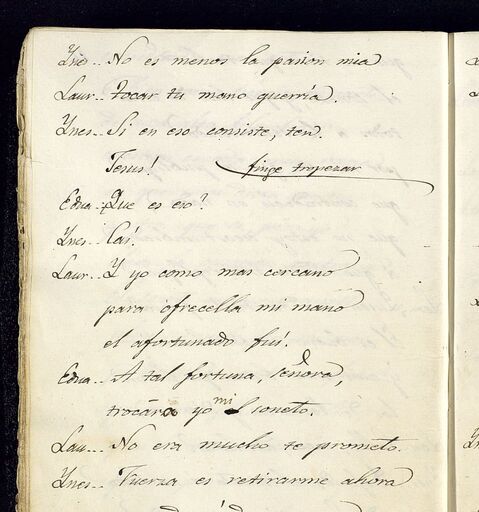 Yne.. No es menos la pasion mia
Laur.. Tocar tu mano querria.
Ynes.. Si en eso consiste, ten.
Jesus! finge tropezar
Edua.. Que es eso?
Ynes.. Caí.
Laur.. Y yo como mas cercano
para ofrecella mi mano
el afortunado fuí.
Edua.. A tal fortuna, señora,
trocára yo mi soneto.
Lau.. No era mucho te prometo.
Ynes.. Fuerza es retirarme ahora